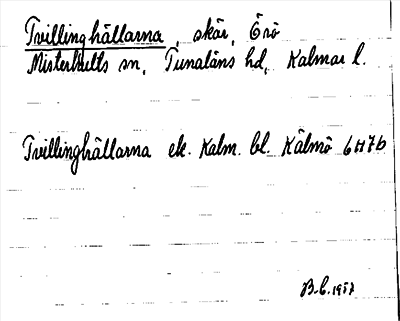 Tvillinghällarna, skär, Örö
Misterhults sn, Tunaläns hd, Kalmar l.
Tvillinghällarna ek. Kalm. bl. Kälmö 6H7b
B.C. 1957